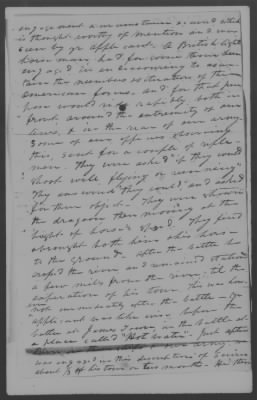 engagement a circumstance occurred which
is thought worthy of mention and was
seen by yr applicant. A British light
horse man, had for some time been
engaged in endeavouring to ascer
tain the numbers & situation of the
American forces, and for that pur
pose would ride rapidly both in
front around the extremity of our
lines, & in the rear of our army.
Some of our officers observing
this, sent for a couple of rifle
men. They were asked if they could
shoot well flying or running"
They answered They could" and asked
for their object. They were shown
the dragoon then moving at the
height of horse's speed. They fired
& brought both him & his horse
to the ground. After the battle he
crossed the river and remained stationed
a few miles from the river; til the
expiration of his tour this was how
ever not immediately after the battle - yr
applicant was likewise before the
battle at James Town, in the battle at
a place called "Hot water". Just after
was engaged in this description of service
about of his tour or two months. His three